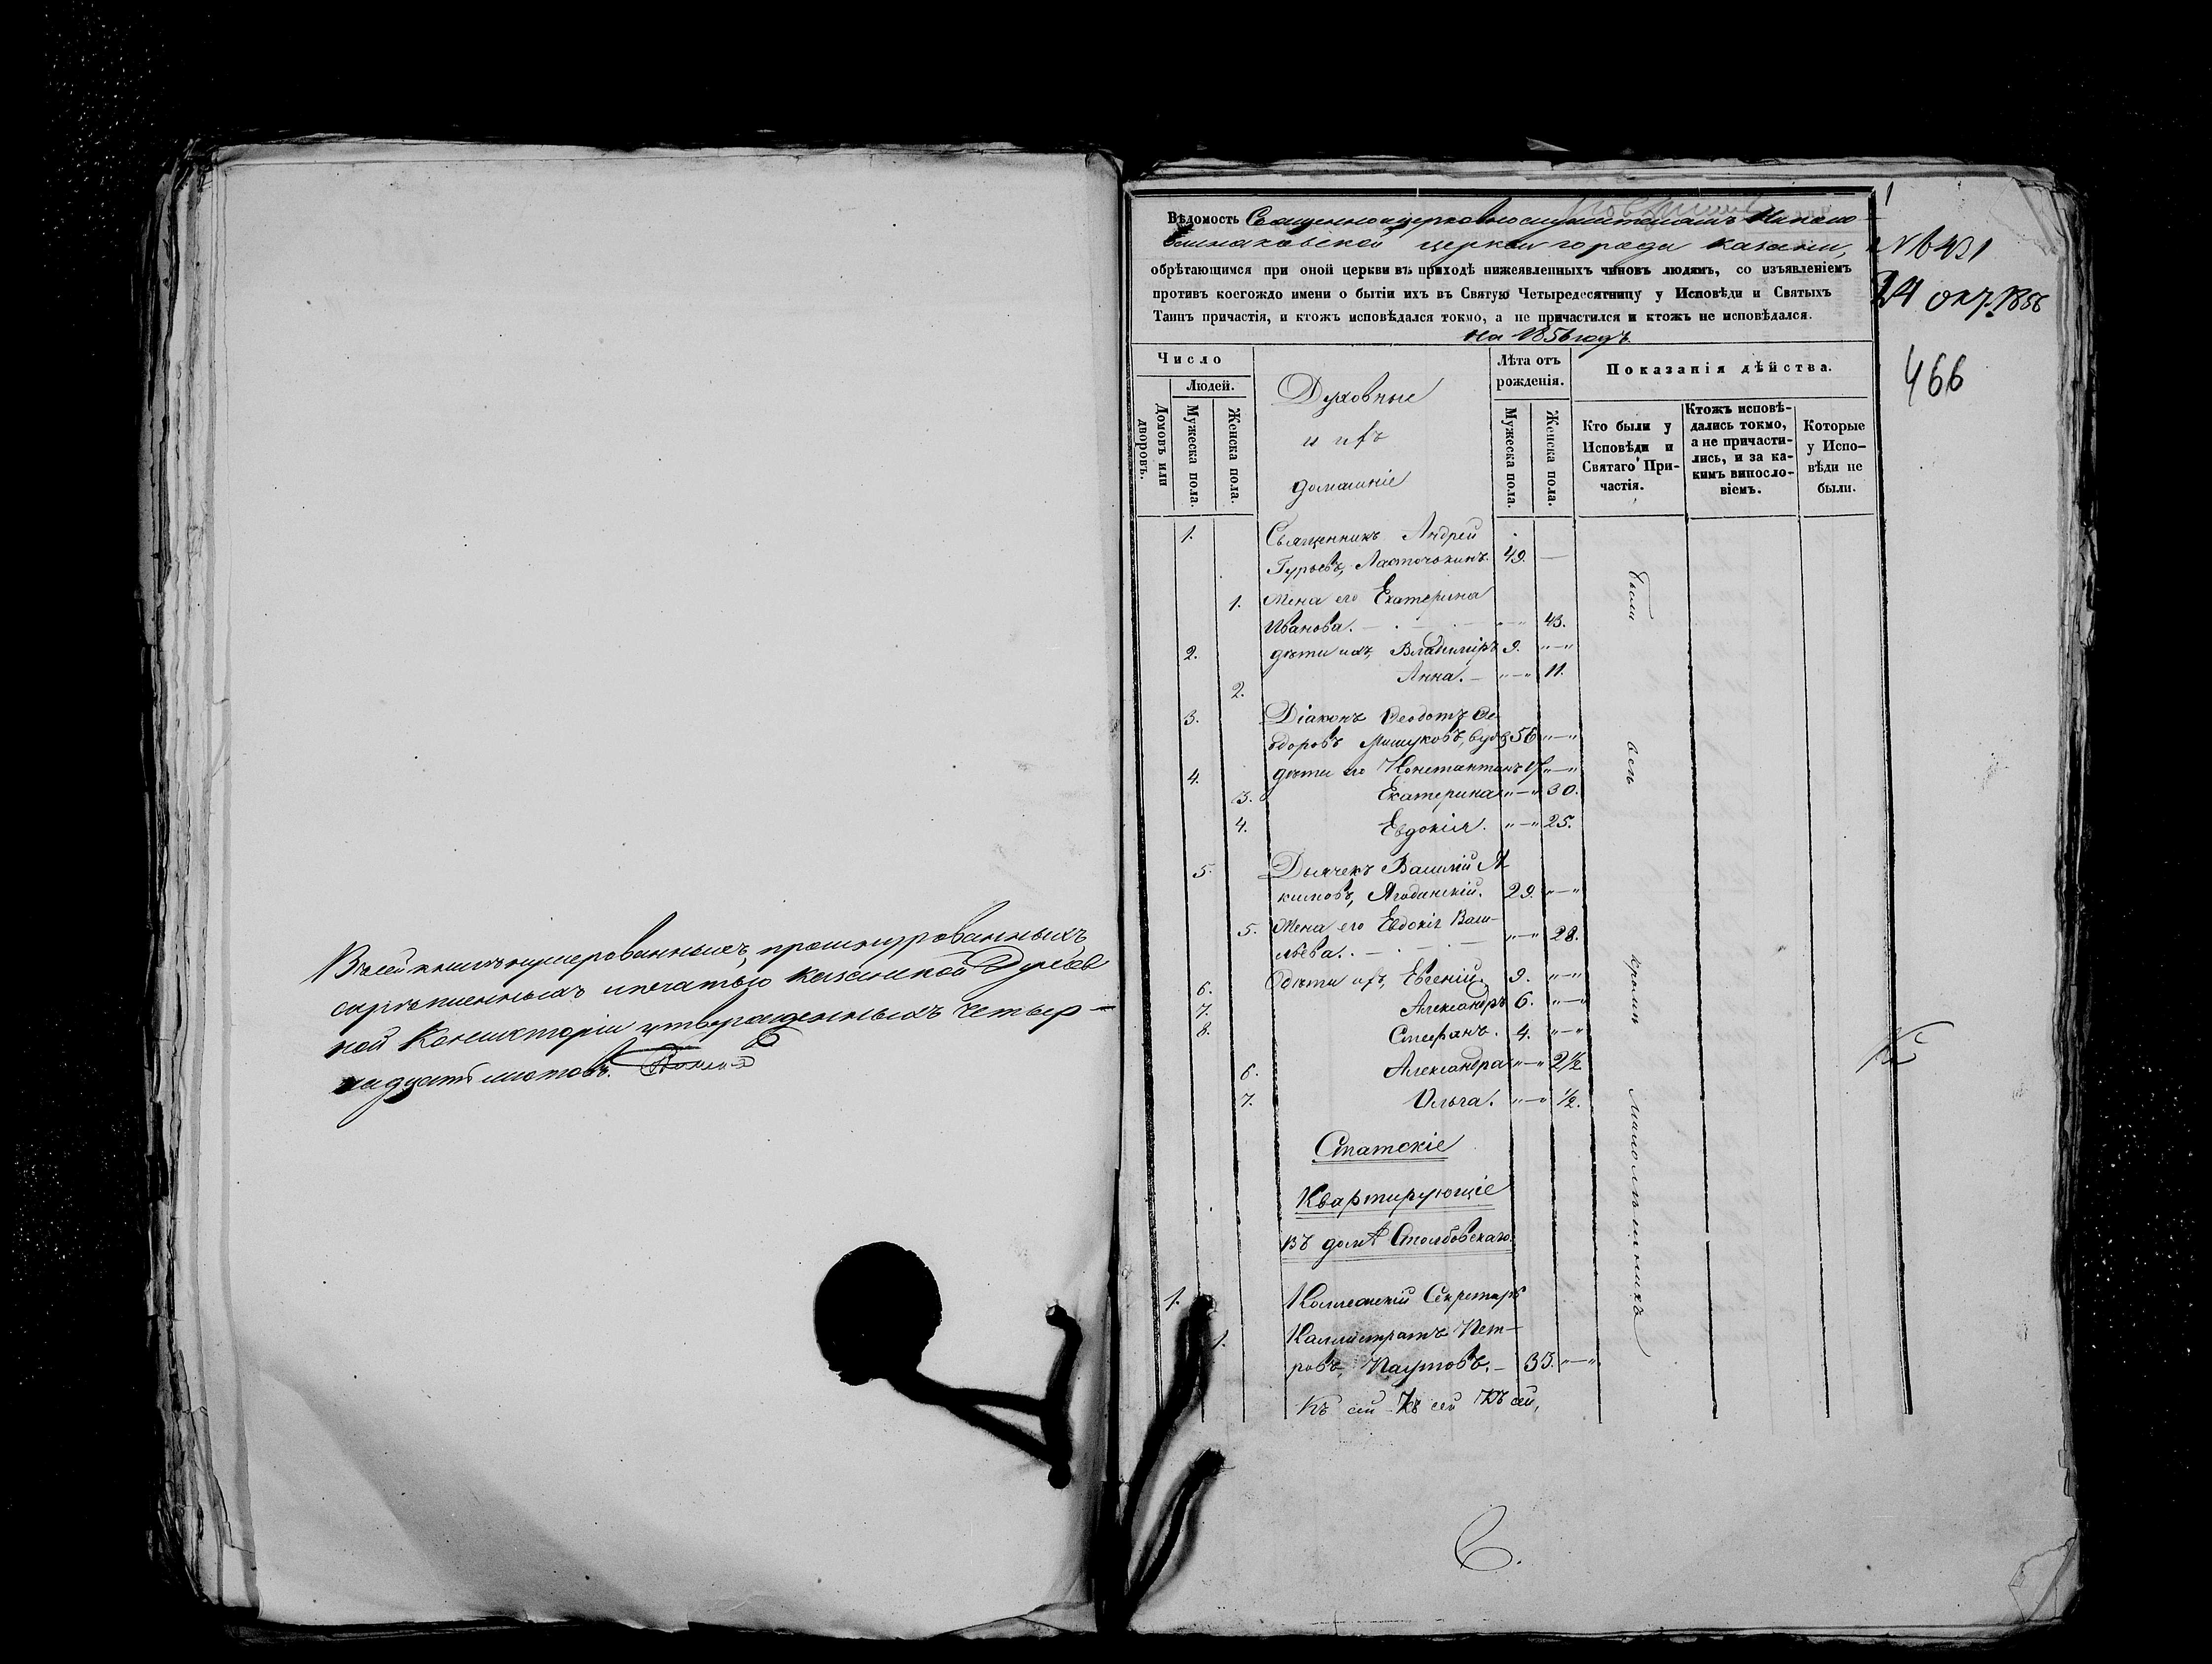 Въ сей книгѣ нумерованныхъ, прошнурованныхъ,
скрѣпленныхъ и печатью Казанской Духов
ной Консисторіи утвержденныхъ четыр-
надцать листовъ.
Вѣдомость Священноцерковнослужителямъ Николо
церкви города Казани,
обрѣтающимся при оной церкви въ приходѣ нижеявленныхъ чиновъ людямъ, со изъявленіемъ
противъ коегождо имени о бытіи ихъ въ Святую Четыредесятницу у Исповѣди и Святыхъ
Таинъ причастія, и ктожъ исповѣдался токмо, а не причастился и ктожъ не исповѣдался.
на 1856 годъ
1
№ 431
24 окт. 1856
466
Число
Людей.
Домовъ или дворовъ.
Мужеска пола.
Женска пола.
Духовные
и ихъ
домашніе
Лѣта отъ
рожденія.
Мужеска пола.
Женска пола.
Показанія дѣйства.
Кто были у
Исповѣди и
Святаго При-
частія.
Ктожъ исповѣ-
дались токмо,
а не причасти-
лись, и за ка-
кимъ виносло-
віемъ.
Которые
у Испо-
вѣди не
были.
1. Священникъ Андрей
Гурьевъ, Ласточкинъ. 49. —
1. Жена его Екатерина
Иванова. - . - . - „—„ 43.
2. дѣти ихъ, Владиміръ 9. „—„
2. Анна. — „—„ 11.
3. Діаконъ Ѳеодотъ Ѳе
одоровъ Мишуковъ, вдов 56 „—„
4. дѣти его Константинъ 17 „—„
3. Екатерина „—„ 30.
4. Евдокія. „—„ 25.
5. Дьячекъ Василій Я
кимовъ, Ягодинскій. 29. „—„
5. Жена его Евдокія Васи-
льева. . - . - - „—„ 28.
6. дѣти ихъ, Евгеній. 9. „—„
7. Александръ 6. „—„
8. Стефанъ. 4. „—„
6. Александра „—„ 2½
7. Ольга. „—„ ½.
были всѣ кромѣ малолѣтнихъ
Статскіе
Квартирующіе
Въ домѣ Столбовскаго.
1. Коллежскій Секретарь
1. Каллистратъ Пет-
ровъ, Паутовъ. — 33. „—„
Къ сей Къ сей Къ сей,